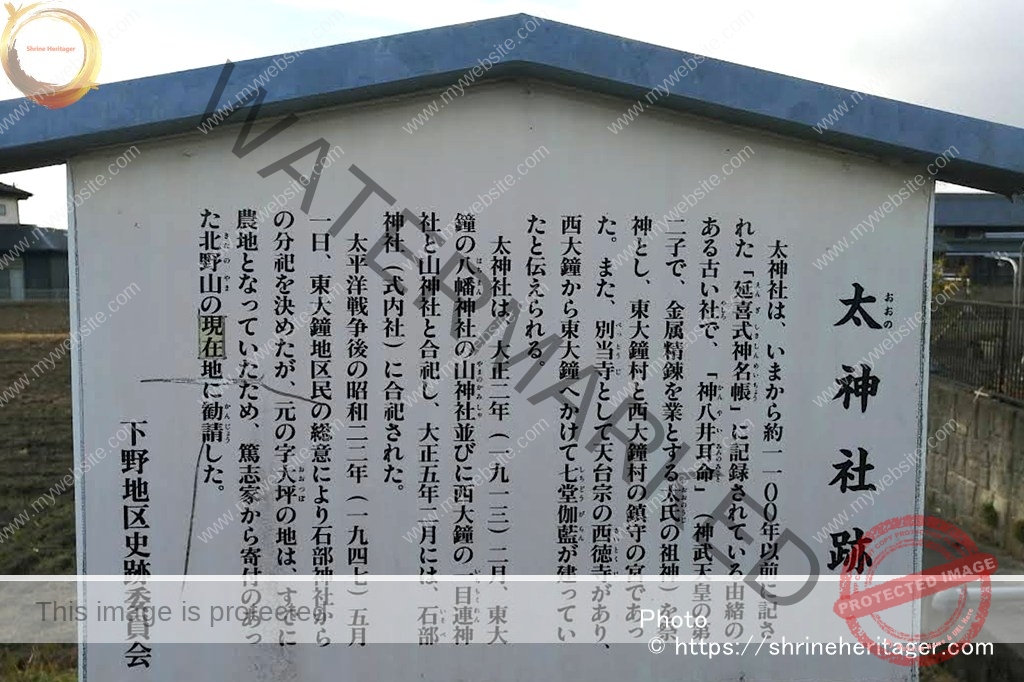 太神社跡
おおの
太神社は、いまから約一一〇〇年以前に記さ
れた「延喜式神名帳」に記録されている由緒の
ある古い社で、「神八井耳命」（神武天皇の第
二子で、金属精錬を業とする太氏の祖神）を祭
神とし、東大鐘村と西大鐘村の鎮守の宮であっ
た。また、別当寺として天台宗の西徳寺があり、
西大鐘から東大鐘へかけて七堂伽藍が建ってい
たと伝えられる。
太神社は、大正二年（一九一三）二月、東大
鐘の八幡神社の山神社並びに西大鐘の一目連神
社と山神社と合祀し、大正五年二月には、石部
神社（式内社）に合祀された。
太平洋戦争後の昭和二二年（一九四七）五月
一日、東大鐘地区民の総意により石部神社から
の分祀を決めたが、元の字大坪の地は、すでに
農地となっていたため、篤志家から寄付のあっ
た北野山の現在地に勧請した。
下野地区史跡委員会
Shrine Heritager
WATERMARKED
www.mywebsite.com
This image is protected
PROTECTED IMAGE
Photo
© https://shrineheritager.com